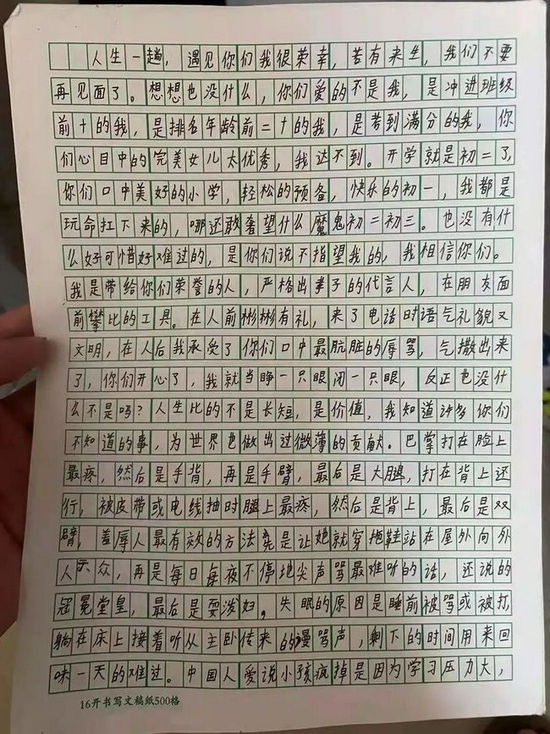 人生一趟，遇见你们我很荣幸，若有来生，我们不要
再见面了。想想也没什么，你们爱的不是我，是冲进班级
前十的我，是排名年龄前二十的我，是考到满分的我，你
们心目中的完美女儿太优秀，我达不到。开学就是初二了，
你们口中美好的小学，轻松的预备，快乐的初一，我都是
玩命扛下来的，哪还敢奢望什么魔鬼初二初三。也没有什
么好可惜好难过的，是你们说不指望我的，我相信你们。
我是带给你们荣誉的人，严格出拳子的代言人，在朋友面
前攀比的工具。在人前彬彬有礼，来了电话时语气礼貌又
文明，在人后我承受了你们口中最肮脏的辱骂，气撒出来
了，你们开心了，我就当睁一只眼闭一只眼，反正也没什
么不是吗？人生比的不是长短，是价值，我知道许多你们
不知道的事，为世界也做出过微薄的贡献。巴掌打在脸上
最疼，然后是手背，再是手臂，最后是大腿，打在背上还
行，被皮带或电线抽时腿上最疼，然后是背上，最后是双
臂，羞辱人最有效的方法竟是让她就穿拖鞋站在屋外向外
人示众，再是每日每夜不停地尖声骂最难听的话，还说的
冠冕堂皇，最后是耍泼妇。失眠的原因是睡前被骂或被打，
躺在床上接着听从主卧传来的谩骂声，剩下的时间用来回
味一天的难过。中国人爱说小孩疯掉是因为学习压力大，
16开书写文稿纸500格